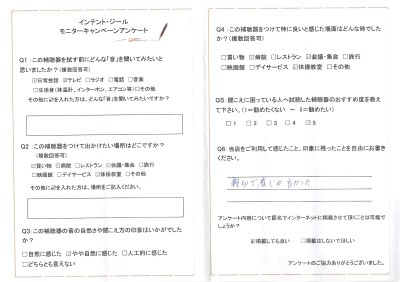 インテント・ジール
モニターキャンペーンアンケート
Q1:この補聴器を試す前にどんな「音」を聞いてみたいと
思いましたか?(複数回答可)
☑日常会話 ☑テレビ □ラジオ □電話 □音楽
□生活音(体温計、インターホン、エアコン等)□その他
その他に記を入れた方は、どんな「音」を聞いてみたいですか?
Q2:この補聴器をつけて出かけたい場所はどこですか?
(複数回答可)
☑買い物 ☑病院 □レストラン ☑会議・集会 □旅行
□映画館 □デイサービス ☑体操教室 □その他
その他に記を入れた方は、場所をご記入ください。
Q3:この補聴器の音の自然さや聞こえ方の印象はいかがでした
か?
□自然に感じた ☑やや自然に感じた □人工的に感じた
□どちらとも言えない
Q4:この補聴器をつけて特に良いと感じた場面はどんな時でした
か?(複数回答可)
□買い物 ☑病院 □レストラン ☑会議・集会 □旅行
□映画館 □デイサービス ☑体操教室 □その他
Q5:聞こえに困っている人へ試聴した補聴器のおすすめ度を教え
て下さい。(1=勧めたくない ― 5=勧めたい)
□1 □2 □3 □4 ☑5
Q6:当店をご利用して感じたこと、印象に残ったことを自由にお書き
ください。
親切で感じがよかった
アンケート内容について匿名でインターネットに掲載させて頂くことは可能で
しょうか?
☑掲載しても良い □掲載はしないでほしい
アンケートのご協力ありがとうございました。